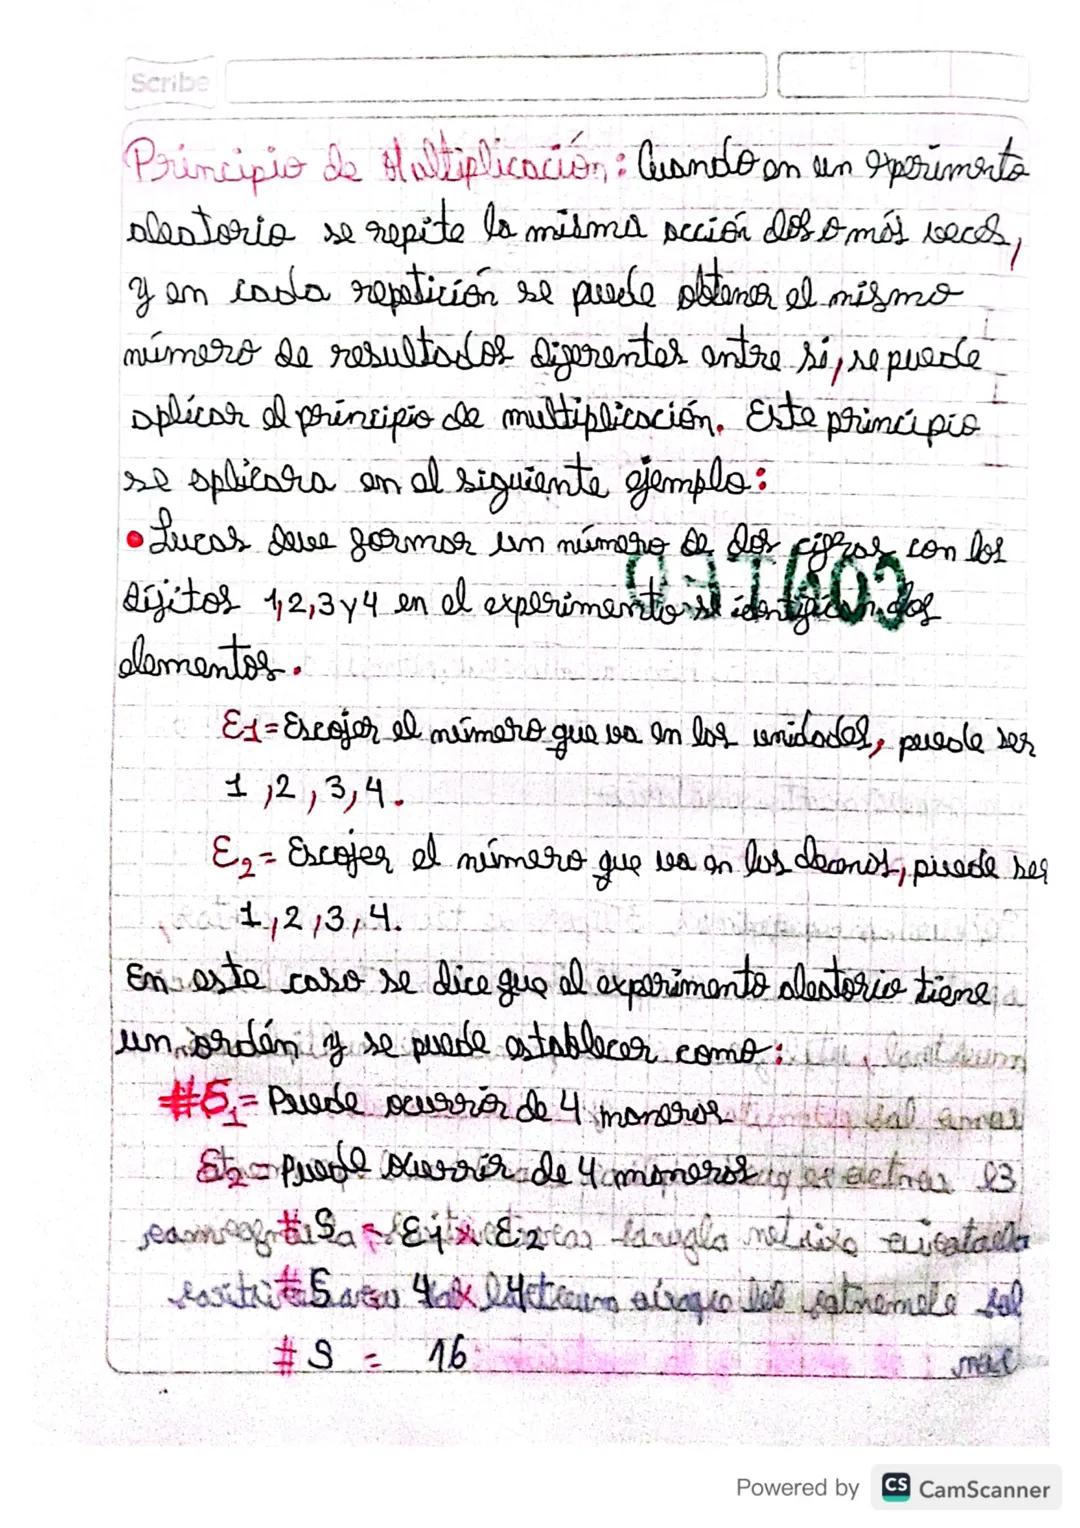 Scribe
Principio de Multiplicación: Cuando en un experimento
aleatorio se repite la misma acción dos o más veces,
y en cada repetición se puede obtener el mismo
número de resultados diferentes entre sí, se puede
aplicar el principio de multiplicación. Este principio
se aplicara en el siguiente ejemplo:
• Lucas deve formar un número de dos cifras con los
dígitos 1,2,3 y 4 en el experimento se identifican dos
elementos.
E1 = Escojer el número que va en las unidades, puede ser
1, 2, 3, 4.
E2 = Escojer el número que va en las decenas, puede ser
1, 2, 3, 4.
En este caso se dice que el experimento aleatorio tiene
un ordén y se puede establecer como:
#E1 = Puede ocurrir de 4 maneras
E2 = Puede ocurrir de 4 maneras
#S = E1 x E2
#S = 4 x 4
#S = 16
Powered by CS CamScanner